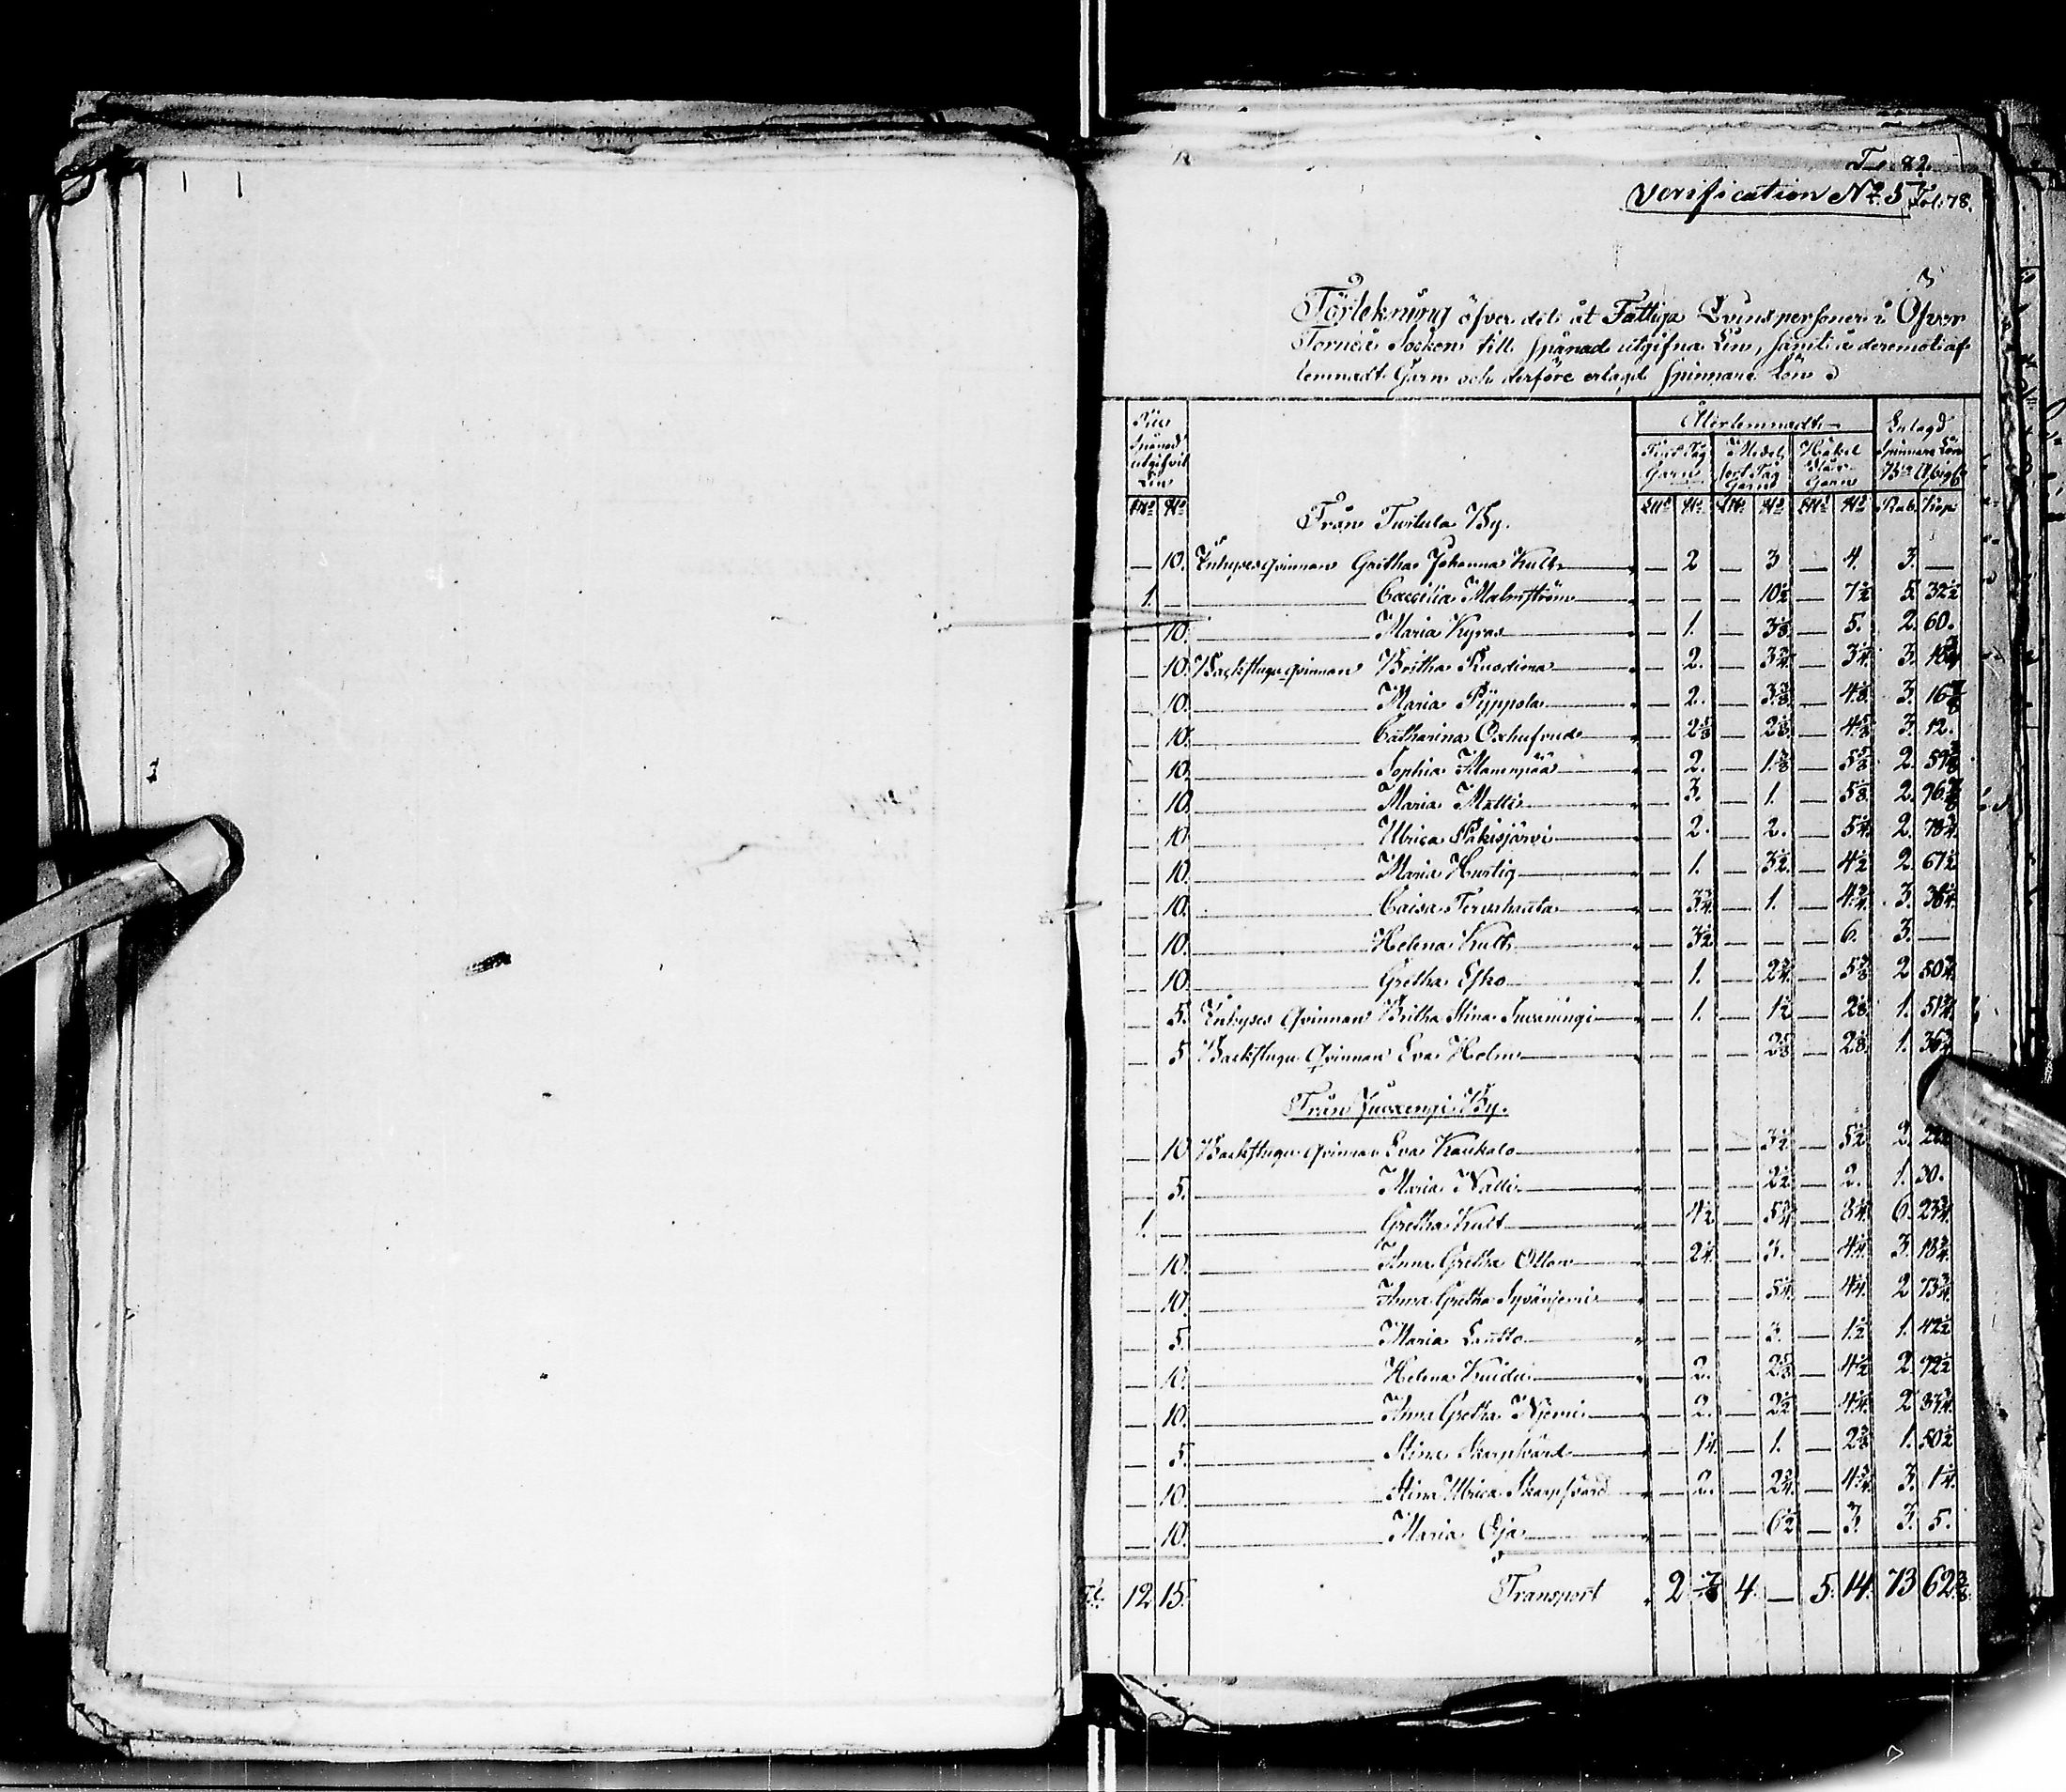 Fol. 82.
Verification No. 5 Fol. 78.
Förtekning öfver det åt Fattiga Qvinspersoner i Öfver
Torneå Socken till spånad utgifna Lin, samt deremot af
lemnadt Garn och derföre erlagd spinnare lön
Till spånad utgifvit Lin | Återlemnadt | Erlagd Spinnare Lön
Fint Tåg Garn | Medel sort Tåg Garn | Häkel Blår Garn
L℔ ℔ | L℔ ℔ | L℔ ℔ | L℔ ℔ | Rub. Kop.
Från Turtula By.
— 10. Inhysesqvinnan Gretha Johanna Kult — 2 — 3 — 4. 3. —
1. — Caecilia Malmström — — — 10½ — 7½ 5. 32½
— 10. Maria Kyrö — 1. — 3⅛ — 5. 2. 60.
— 10. Backstugu qvinnan Britha Ruodima — 2. — 3¾ — 3¼ 3.
— 10. Maria Pyppola — 2. — 3⅜ — 4⅛ 3. 16⅞
— 10. Catharina Oxhufvud — 2⅝ — 2⅛ — 4⅝ 3. 12.
— 10. Sophia Manenpää — 2. — 1⅜ — 5⅝ 2.
— 10. Maria Matti — 3. — 1. — 5⅛ 2. 96⅞
— 10. Ulrica Pakisjärvi — 2. — 2. — 5¼ 2. 78¾
— 10. Maria Hurtig — 1. — 3½ — 4½ 2. 67½
— 10. Caisa — 3¾ — 1. — 4¾ 3. 36¼
— 10. Helena Kult — 3½ — — — 6. 3. —
— 10. Gretha Esko — 1. — 2¾ — 5⅜ 2 50¾
— 5. Inhyses Qvinnan Britha Stina — 1. — 1½ — 2⅛ 1. 51¾
— 5 Backstugu Qvinnan Eva Holm — — — 2⅝ — 2⅛ 1. 36
Från Juoxengi By.
— 10 Backstugu Qvinnan Eva Kaukalo — — — 3½ — 5½ 2.
— 5. Maria Natti — — — 2½ — 2. 1. 30.
1. — Gretha Kult — 4½ — 5¾ — 8¼ 6. 23¾
— 10. Anna Gretha Ollon — 2¼ — 3. — 4¼ 3. 18¾
— 10. Anna Gretha Syvänjemi — — — 5¼ — 4¼ 2 73¾
— 5. Maria Lautto — — — 3. — 1½ 1. 42½
— 10. Helena — 2. — 2⅝ — 4½ 2. 92½
— 10. Anna Gretha Njemi — 2. — 2½ — 4¼ 2 83¾
— 5. Stina Skarpsvärd — 1¼ — 1. — 2⅜ 1. 50½
— 10. Stina Ulrica Skarpsvärd — 2. — 2¾ — 4¾ 3. 1¼
— 10. Maria Oja — — — 6½ — 3. 3. 5.
12. 15. Transport 2 ⅞ 4. — 5. 14. 73 62⅜